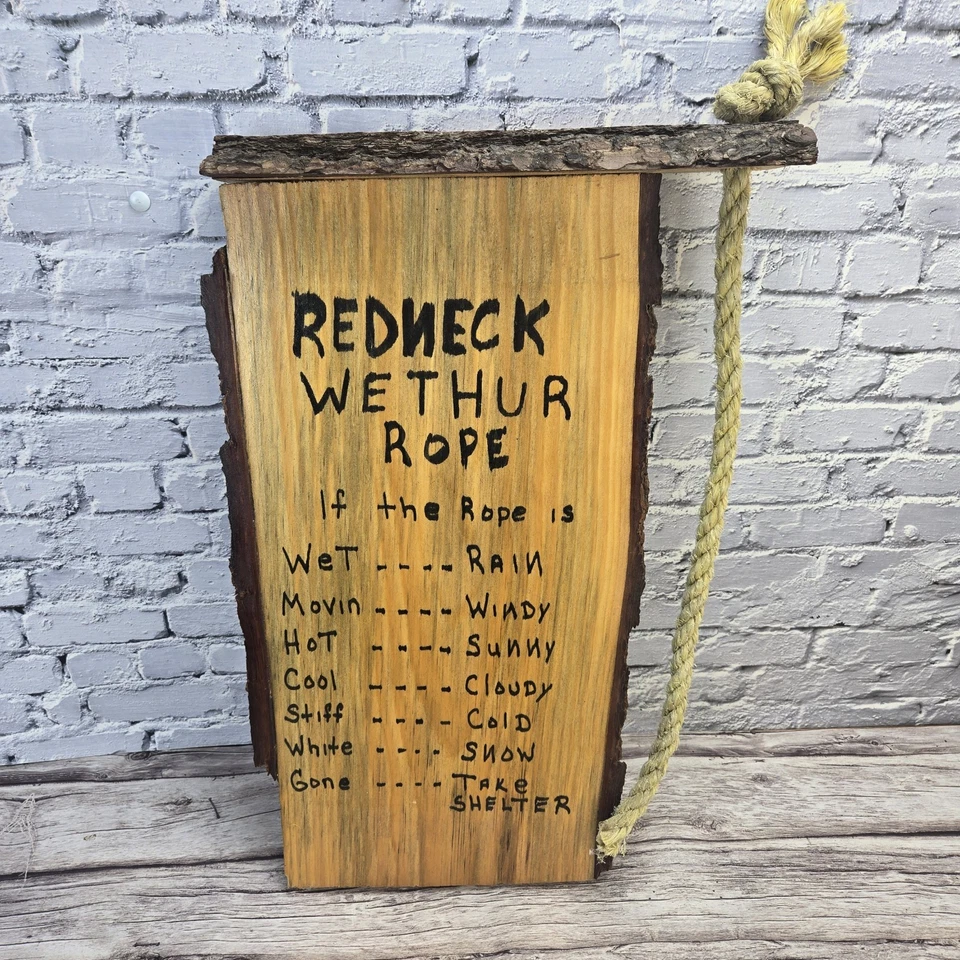 REDNECK
WETHUR
ROPE
If the Rope is
WeT ---- RAIN
Movin ---- WINDY
HoT ---- Sunny
Cool ---- ClouDy
Stiff ---- ColD
White ---- SNOW
Gone ---- TAKe
SHELTER